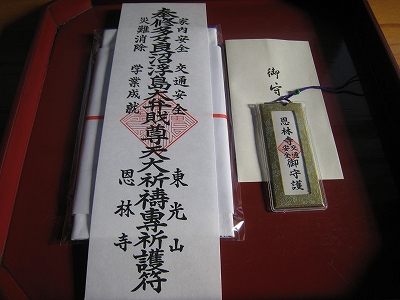 家内安全 交通安全
奉修多々良沼浮島大弁財尊天大祈祷専祈護符
災難消除 学業成就
東光山
恩林寺
御守
恩林寺交通安全御守護